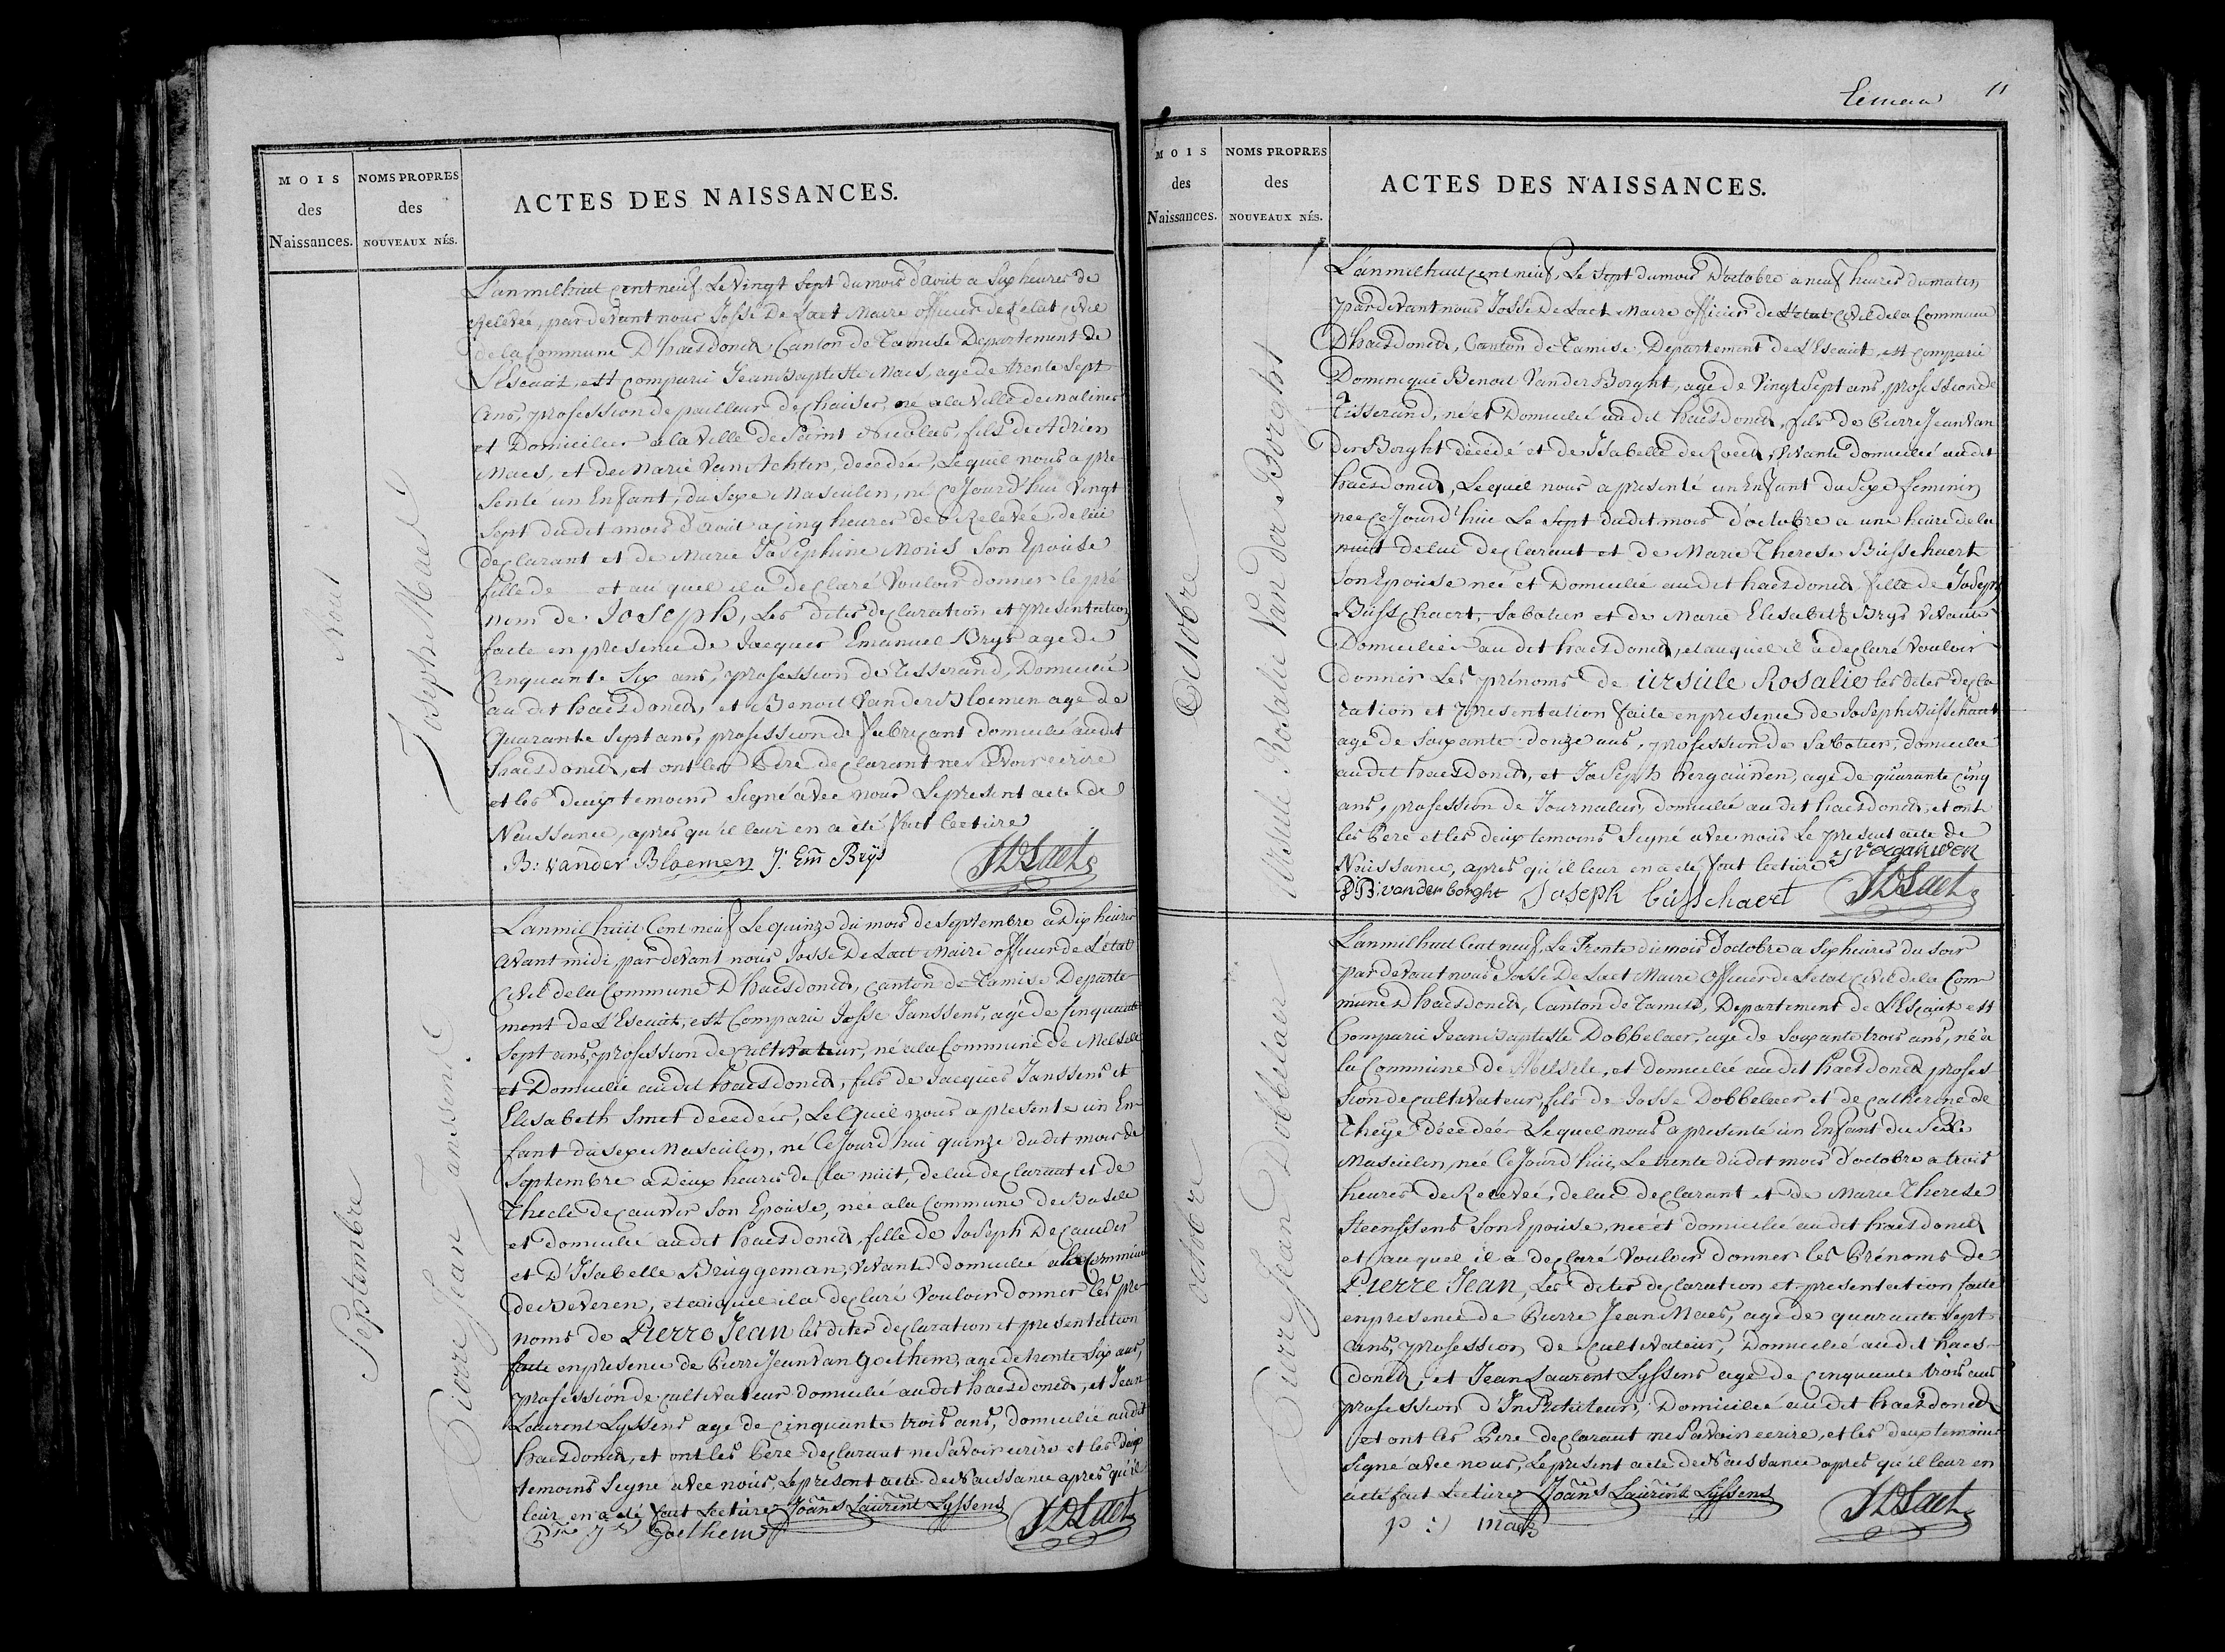 MOIS
des
Naissances.
NOMS PROPRES
des
NOUVEAUX NÉS.
ACTES DES NAISSANCES.
Aout
Joseph Maes
L'an mil huit cent neuf, Le Vingt Sept du mois d'aout a Six heures de
Relevée, par devant nous Josse De Laet Maire officier de l'etat Civil
de la Commune D'haesdonck, Canton de Tamise Departement de
L'Escaut, est comparu Jean Baptiste Maes, agé de trente sept
ans, profession de pailleur de chaises, né a la Ville de malines
et Domicilier a la Ville de Saint Nicolas, fils de Adrien
Maes, et de Marie Van Achter, decedés, Lequel nous a pre
senté un Enfant, du Sexe Masculin, né Ce Jourd'hui Vingt
Sept du dit mois d'aout a cinq heures de Relevée, de lui
declarant et de Marie Josephine Moris Son Epouse
fille de et au quel il a declaré Vouloir donner le pré
nom de Joseph, Les dites declaration et presentation
faite en presence de Jacques Emanuel Brys agé de
Cinquante Six ans, profession de Tisserand, Domicilié
au dit haesdonck, et Benoit Vander Bloemen agé de
Quarante Sept ans, profession de fabricant domicilié au dit
haesdonck, et ont les Père declarant ne Savoir ecrire
et les deux temoins Signé avec nous Le present acte de
Naissance, après qu'il leur en a été fait lecture
B: vander Bloemen J: Em Brys JDLaet
Septembre
Pierre Jean Janssens
L'an mil huit Cent neuf Le quinze du mois de Septembre a Dix heures
avant midi, par devant nous Josse De Laet Maire officier de L'état
Civil de la Commune D'haesdonck, Canton de Tamise Departe
ment de L'Escaut, est Comparu Josse Janssens, agé de Cinquante
Sept ans, profession de cultivateur, né a la Commune de Melsele
et Domicilié au dit haesdonck, fils de Jacques Janssens et
Elisabeth Smet decedés, Le Quel nous a presenté un En
fant du sexe Masculin, né Ce Jourd'hui quinze du dit mois de
Septembre a Deux heures de la nuit, de lui declarant et de
Thecle de cauwer Son Epouse, née a la Commune de Basele
et domicilié au dit haesdonck, fille de Joseph De Cauwer
et D'Isabelle Bruggeman, vivants domicilié a la Commune
de Beveren, et auquel il a declaré Vouloir donner les pre
noms de Pierre Jean les dites declaration et presentation
faite en presence de Pierre Jean Van Goethem, agé de trente Six ans,
profession de cultivateur domicilié au dit haesdonck, et Jean
Laurent Lyssens agé de cinquante trois ans, domicilié au dit
haesdonck, et ont les Père declarant ne Savoir ecrire et les deux
temoins Signé avec nous, Le present acte de Naissance après qu'il
leur en a été fait Lecture Joannes Laurent Lyssens JDLaet
Goethem
11
MOIS
des
Naissances.
NOMS PROPRES
des
NOUVEAUX NÉS.
ACTES DES NAISSANCES.
Octobre
Ursule Rosalie Van der Borght
L'an mil huit Cent neuf, Le Sept du mois D'octobre a neuf heures du matin
par devant nous Josse De Laet Maire officier de l'etat Civil de la Commune
D'haesdonck, Canton de Tamise, Departement de L'Escaut, est comparu
Dominique Benoit Van der Borght, agé de Vingt Sept ans, profession de
Tisserand, né et Domicilié au dit haesdonck, fils de Pierre Jean Van
Der Borght décédé et de Isabelle de Roeck, vivante domicilié au dit
haesdonck, Lequel nous a presenté un Enfant du Sexe feminin
née Ce Jourd'hui Le Sept du dit mois d'octobre a une heure de la
nuit de lui declarant et de Marie Therese Busschaert
Son Epouse née et Domicilié au dit haesdonck fille de Joseph
Busschaert, Sabotier et de Marie Elisabeth Brys Vivants
Domiciliés au dit haesdonck, et auquel il a declaré Vouloir
donner Les prénoms de Ursule Rosalie les dites decla
ration et presentation faite en presence de Joseph Busschaert
agé de Soixante douze ans, profession de Sabotier, domicilié
au dit haesdonck, et Joseph Vergauwen, agé de quarante cinq
ans, profession de Journalier, domicilié au dit haesdonck, et ont
les Pere et les deux temoins Signé avec nous Le present acte de
Naissance, après qu'il leur en a été fait lecture J Vergauwen
D:B: vander borght Joseph busschaert JDLaet
octobre
Pierre Jean Dobbelaer
L'an mil huit Cent neuf, Le Trente du mois d'octobre a Six heures du Soir
par devant nous Josse De Laet Maire Officier de L'etat Civil de la Com
mune D'haesdonck, Canton de Tamise, Departement de L'Escaut est
Comparu Jean Baptiste Dobbelaer, agé de Soixante trois ans, né a
la Commune de Melsele, et domicilié au dit haesdonck profes
sion de cultivateur, fils de Josse Dobbelaer et de Catherine de
Theye décedés Lequel nous a presenté un Enfant du Sexe
Masculin, née Ce Jourd'hui, Le trente du dit mois d'octobre a trois
heures de Relevée, de lui declarant et de Marie Therese
Steenssens Son Epouse, née et domicilié au dit haesdonck
et au quel il a declaré Vouloir donner les Prénoms de
Pierre Jean, Les dites declaration et presentation faite
en presence de Pierre Jean Maes, agé de quarante Sept
ans, profession de Cultivateur, Domicilié au dit haes-
donck, et Jean Laurent Lyssens agé de Cinquante trois ans
profession d'Instituteur, Domicilié au dit haesdonck
et ont les Pere declarant ne Savoir ecrire, et les deux temoins
Signé avec nous, Le present acte de Naissance après qu'il leur en
a été fait Lecture Joannes Laurent Lyssens JDLaet
p :J maes